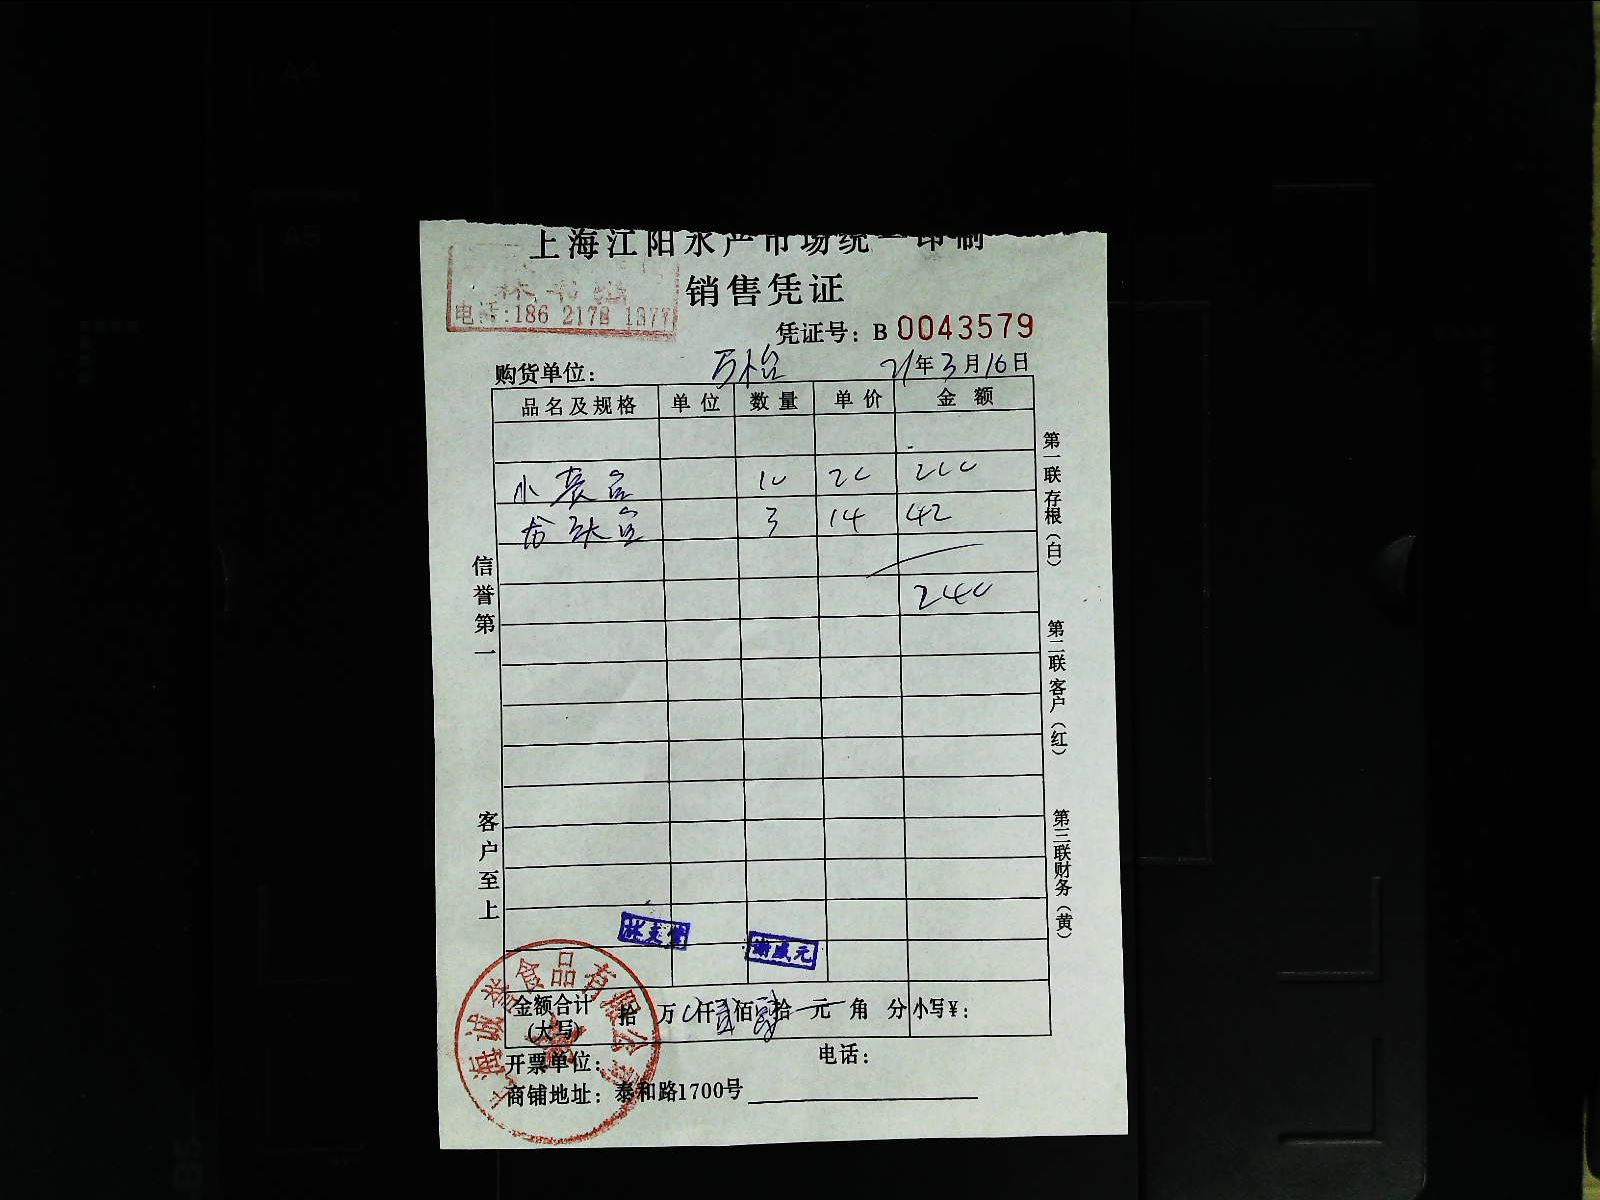 上海江阳水产市场统一印制
销售凭证
电话:186 2178 1377
凭证号: B 0043579
购货单位: 万怡 21年3月16日
品名及规格 单位 数量 单价 金额
小 10 20 200
龙头 3 14 42
240
信誉第一
客户至上
第一联存根(白)
第二联客户(红)
第三联财务(黄)
金额合计(大写) 拾 万 仟贰佰肆拾 元 角 分 小写¥:
开票单位: 电话:
商铺地址: 泰和路1700号
上海诚誉食品有限公司